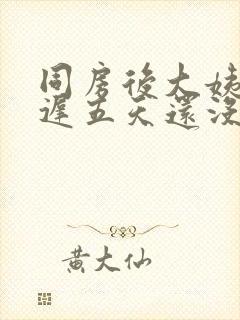 同房後大姨
遲五天還沒
黃大仙